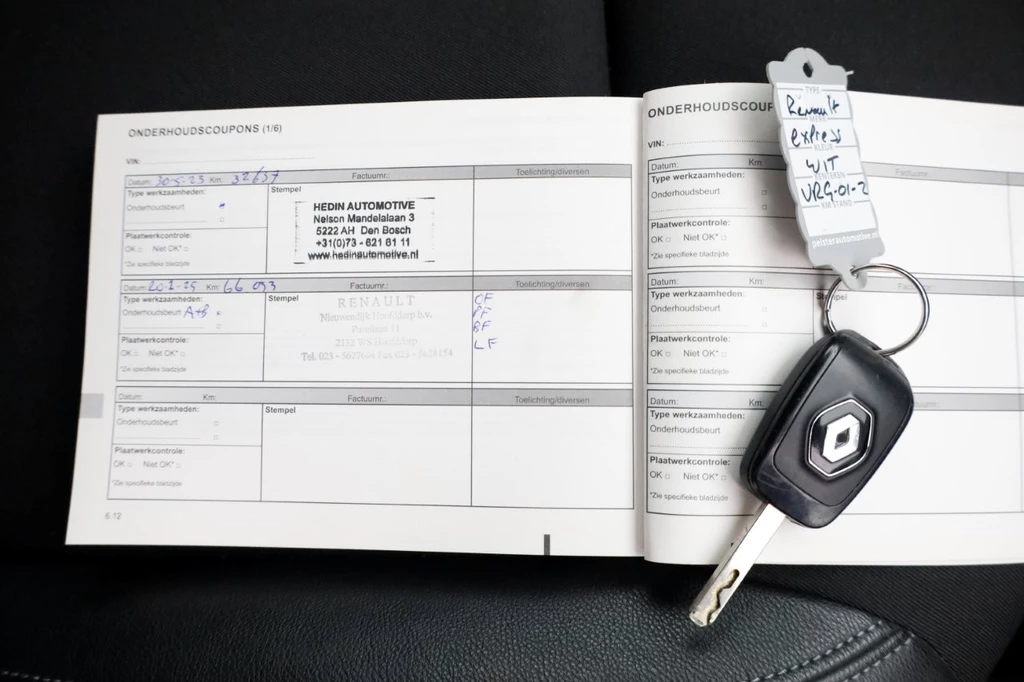 ONDERHOUDSCOUPONS (1/6)
VIN:
Datum: 30-5-23 Km: 32657 Factuurnr.: Toelichting/diversen
Type werkzaamheden:
Onderhoudsbeurt
Stempel
HEDIN AUTOMOTIVE
Nelson Mandelalaan 3
5222 AH Den Bosch
+31(0)73 - 621 61 11
www.hedinautomotive.nl
Plaatwerkcontrole:
OK □ Niet OK* □
*Zie specifieke bladzijde
Datum: Km: 66 093 Factuurnr.: Toelichting/diversen
Type werkzaamheden:
Onderhoudsbeurt A+B
Stempel
RENAULT
Nieuwendijk Hoofddorp b.v.
2132 WS Hoofddorp
OF
BF
LF
Plaatwerkcontrole:
OK □ Niet OK* □
*Zie specifieke bladzijde
Datum: Km: Factuurnr.: Toelichting/diversen
Type werkzaamheden:
Onderhoudsbeurt
Stempel
Plaatwerkcontrole:
OK □ Niet OK* □
*Zie specifieke bladzijde
6.12
VIN:
Datum: Km:
Type werkzaamheden:
Onderhoudsbeurt
Plaatwerkcontrole:
OK □ Niet OK* □
*Zie specifieke bladzijde
Datum: Km:
Type werkzaamheden:
Onderhoudsbeurt
Plaatwerkcontrole:
OK □ Niet OK* □
*Zie specifieke bladzijde
Datum: Km:
Type werkzaamheden:
Onderhoudsbeurt
Plaatwerkcontrole:
OK □ Niet OK* □
*Zie specifieke bladzijde
TYPE
Renault
express
KLEUR
WIT
KENTEKEN
VRG-01-
KM STAND
pelsterautomotive.nl